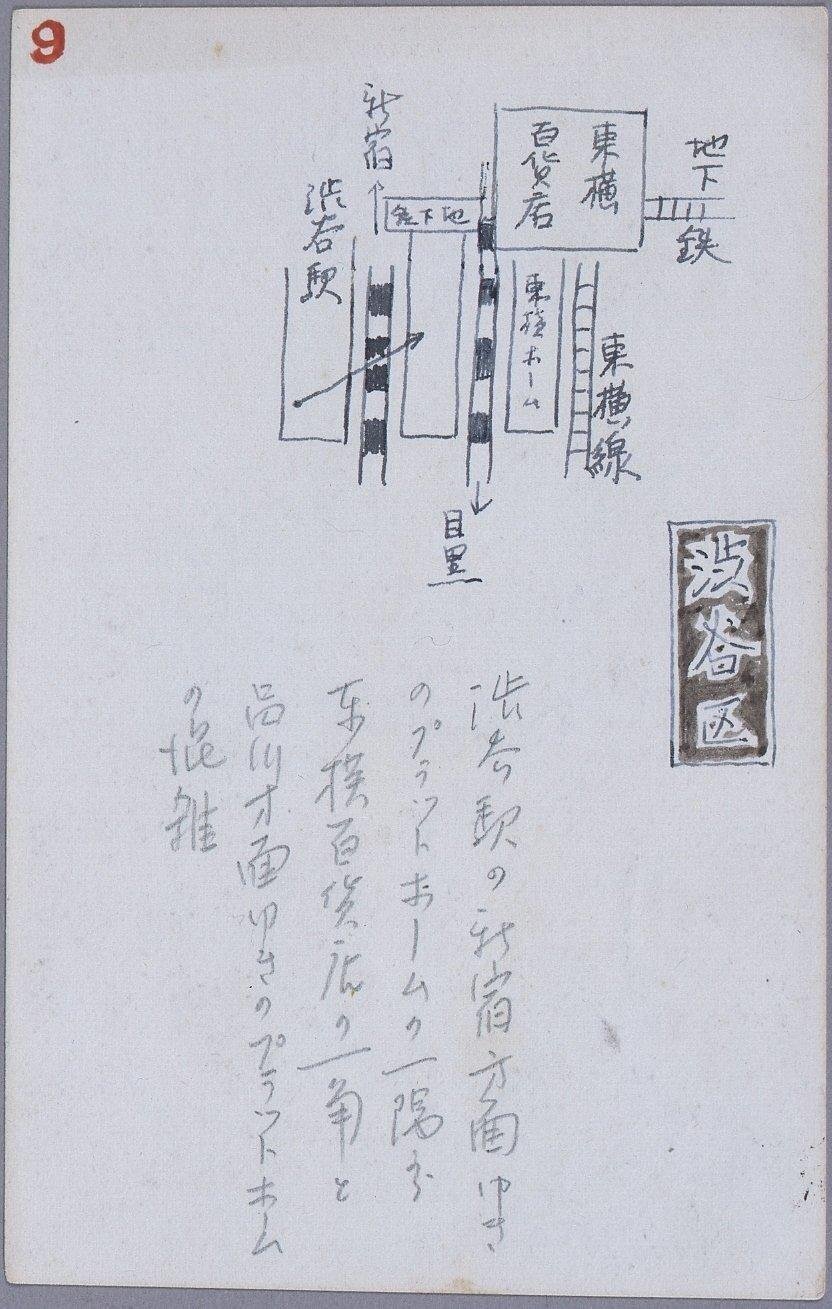 9
新宿
渋谷駅
地下鉄
東横
百貨店
地下
鉄
東横ホーム
東横線
目黒
渋谷区
渋谷駅の新宿方面ゆき
のプラットホームの一隅から
東横百貨店の一角と
品川方面ゆきのプラットホーム
の混雑